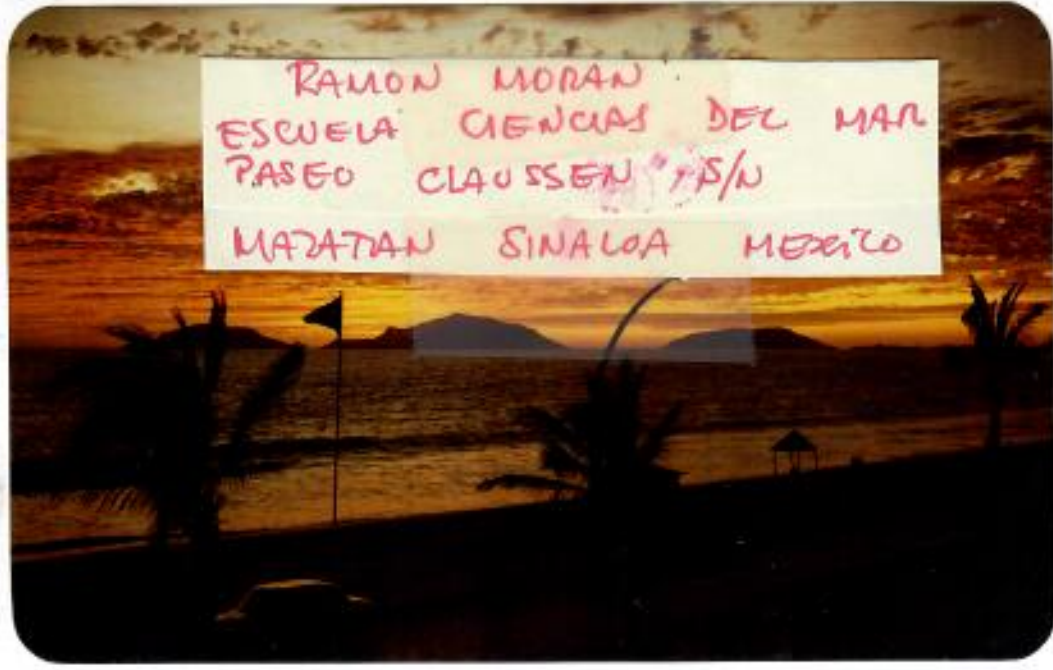 RAMON MORAN
ESCUELA CIENCIAS DEL MAR
PASEO CLAUSSEN S/N
MAZATLAN SINALOA MEXICO